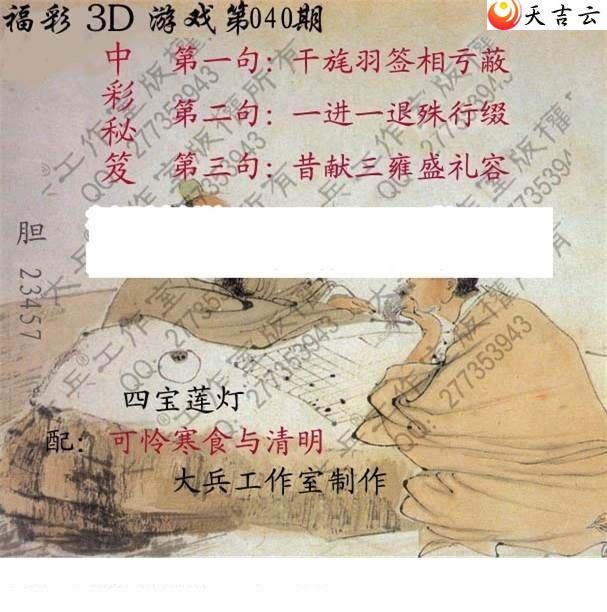 福彩 3D 游戏第040期
天吉云
中彩秘笈
第一句：干旄羽签相亏蔽
第二句：一进一退殊行缀
第三句：昔献三雍盛礼容
胆 23457
四宝莲灯
配：可怜寒食与清明
大兵工作室制作
大兵®工作室版权所有
QQ:277353943